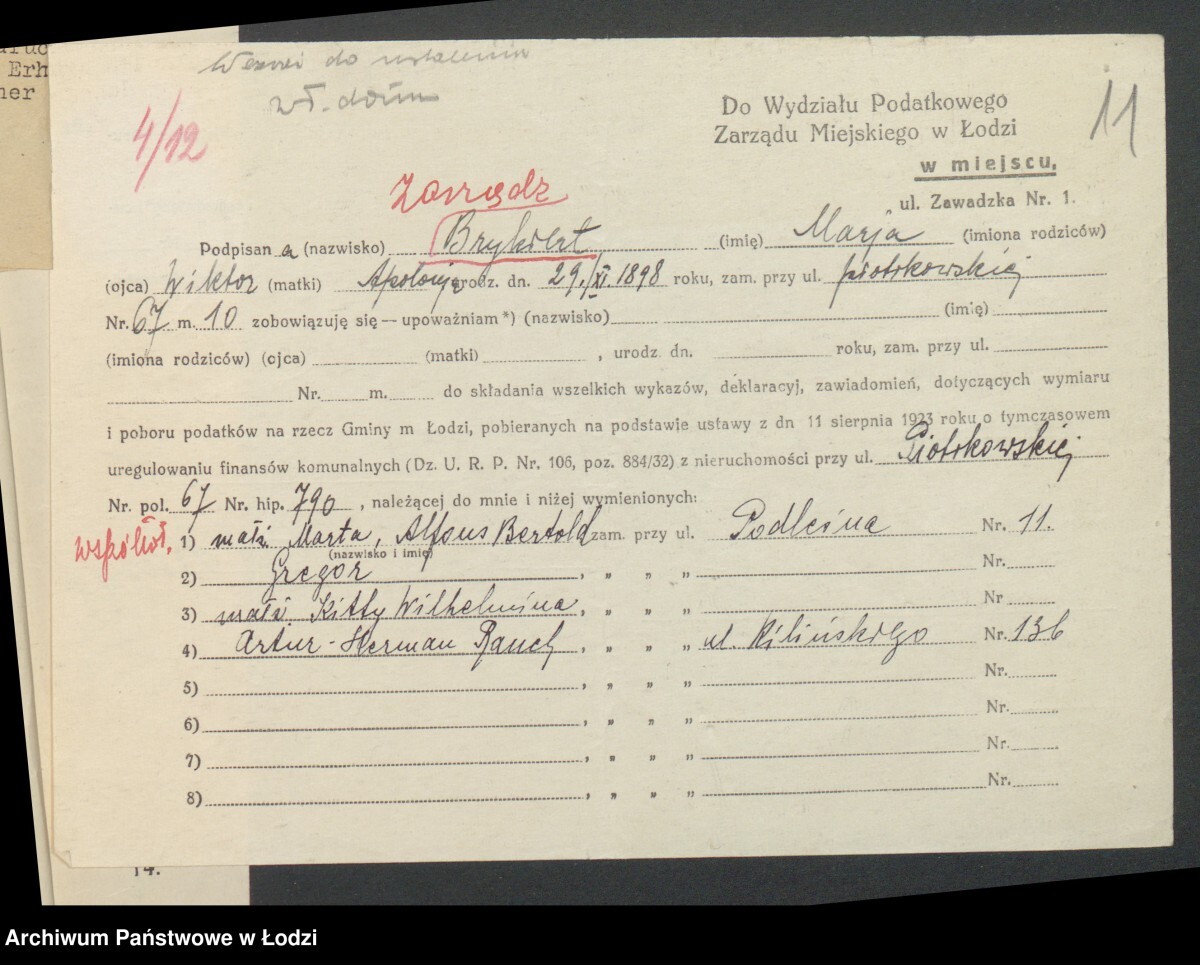 Erh
ner
do
wł. domu
4/12
Do Wydziału Podatkowego
Zarządu Miejskiego w Łodzi
w miejscu,
ul. Zawadzka Nr. 1.
11
Zarządz
Podpisan a (nazwisko) (imię) Marja (imiona rodziców)
(ojca) Wiktor (matki) Apolonja urodz. dn. 29./XI.1898 roku, zam. przy ul. Piotrkowskiej
Nr. 67 m. 10 zobowiązuję się — upoważniam *) (nazwisko) (imię)
(imiona rodziców) (ojca) (matki) , urodz. dn. roku, zam. przy ul.
Nr. m. do składania wszelkich wykazów, deklaracyj, zawiadomień, dotyczących wymiaru
i poboru podatków na rzecz Gminy m Łodzi, pobieranych na podstawie ustawy z dn 11 sierpnia 1923 roku o tymczasowem
uregulowaniu finansów komunalnych (Dz. U. R. P. Nr. 106, poz. 884/32) z nieruchomości przy ul. Piotrkowskiej
Nr. pol. 67 Nr. hip. 790 , należącej do mnie i niżej wymienionych:
współwł. 1) małż. Marta, Alfons Bertold zam. przy ul. Podleśna Nr. 11.
(nazwisko i imię)
2) Gregor , „ „ „ Nr.
3) małż. Kitty Wilhelmina , „ „ „ Nr
4) Artur-Herman Rauch , „ „ „ ul. Kilińskiego Nr. 136
5) , „ „ „ Nr.
6) , „ „ „ Nr.
7) , „ „ „ Nr.
8) , „ „ „ Nr.
14.
Archiwum Państwowe w Łodzi